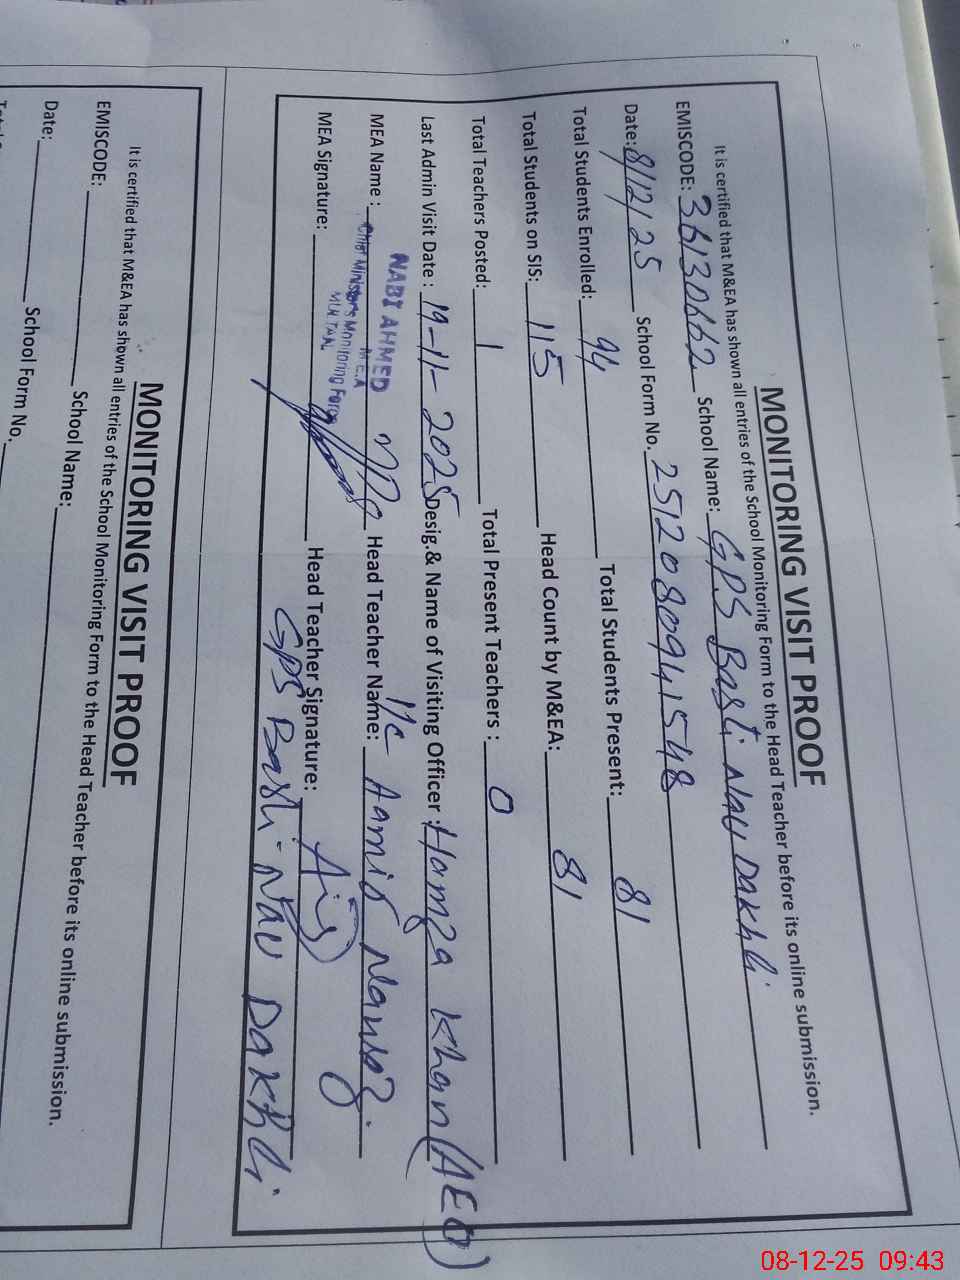 MONITORING VISIT PROOF
It is certified that M&EA has shown all entries of the School Monitoring Form to the Head Teacher before its online submission.
EMISCODE: 36130662 School Name: GPS Basti Nau Dakhli
Date: 8/12/25 School Form No. 2512080941548
Total Students Enrolled: 94 Total Students Present: 81
Total Students on SIS: 115 Head Count by M&EA: 81
Total Teachers Posted: 1 Total Present Teachers : 0
Last Admin Visit Date : 19-11-2025 Desig.& Name of Visiting Officer : Hamza Khan (AEO)
MEA Name : NABI AHMED Head Teacher Name: I/c Aamir
M.E.A
Chief Minister's Monitoring Force
MULTAN
MEA Signature: Head Teacher Signature:
GPS Basti Nau Dakhli
MONITORING VISIT PROOF
It is certified that M&EA has shown all entries of the School Monitoring Form to the Head Teacher before its online submission.
EMISCODE: School Name:
Date: School Form No.
08-12-25 09:43